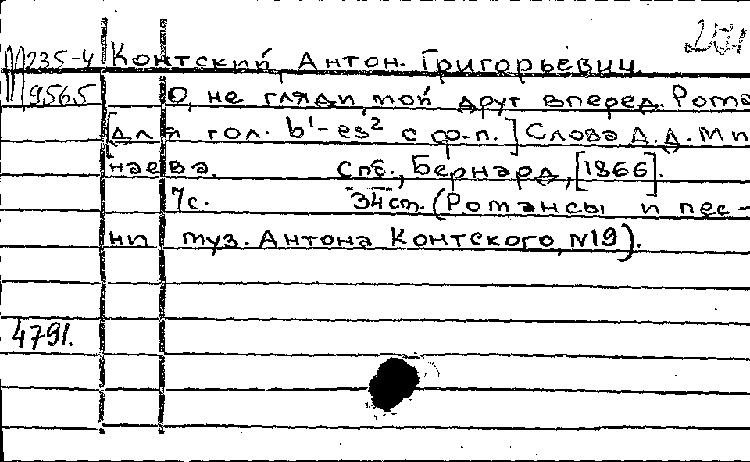 М235-4 Контский, Антон. Григорьевич.
М9565 О, не гляди, мой друг вперед. Рома
[для гол. b¹-es² с ф-п.] Слова Д.Д. Ми
наева. Спб., Бернард, [1866].
7с. 34см. (Романсы и пес-
ни муз. Антона Контского, N19).
4791.